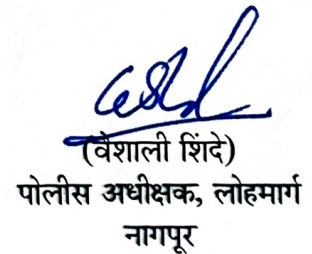 (वैशाली शिंदे)
पोलीस अधीक्षक, लोहमार्ग
नागपूर